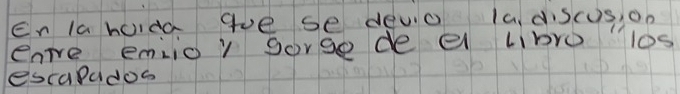 En la hoida que se devio la discusion
entre emilio y gorge de el Libro "los
escapados